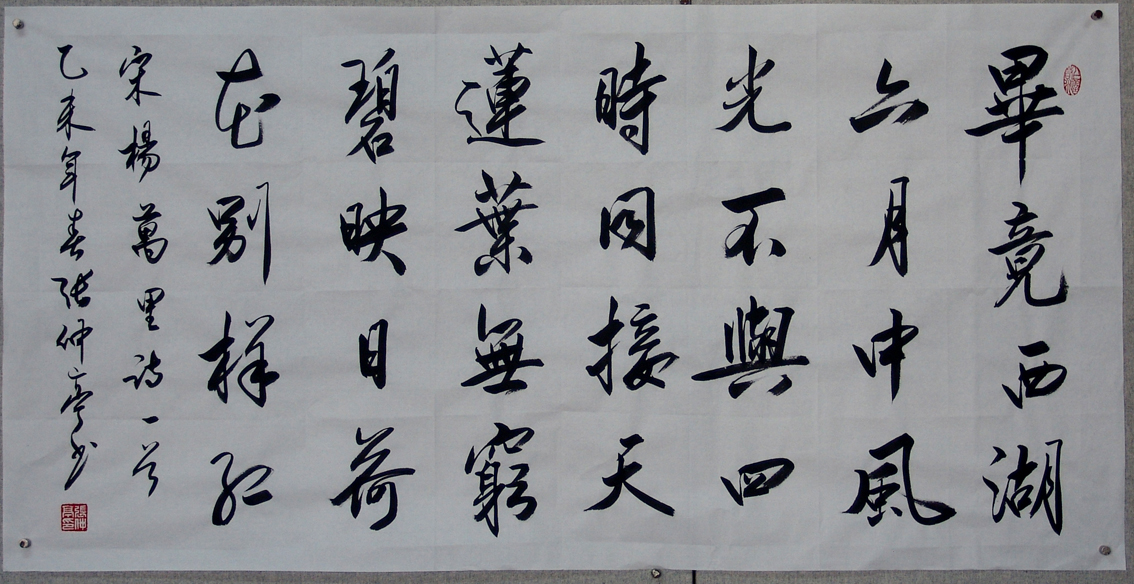 畢竟西湖
六月中風
光不與四
時同接天
蓮葉無窮
碧映日荷
花別樣紅
宋楊萬里詩一首
乙未年春張仲亭書
張仲亭印